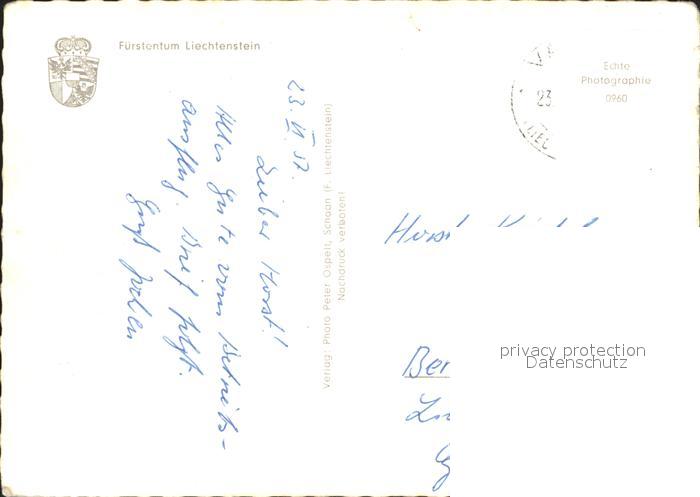 Fürstentum Liechtenstein
Echte
Photographie
0960
23
23. VI. 57.
Lieber Horst!
Alles Gute vom Betriebs-
ausflug. Brief folgt.
Gruß Jochen
Verlag: Photo Peter Ospelt, Schaan (F. Liechtenstein)
Nachdruck verboten!
Horst
Ber
privacy protection
Datenschutz